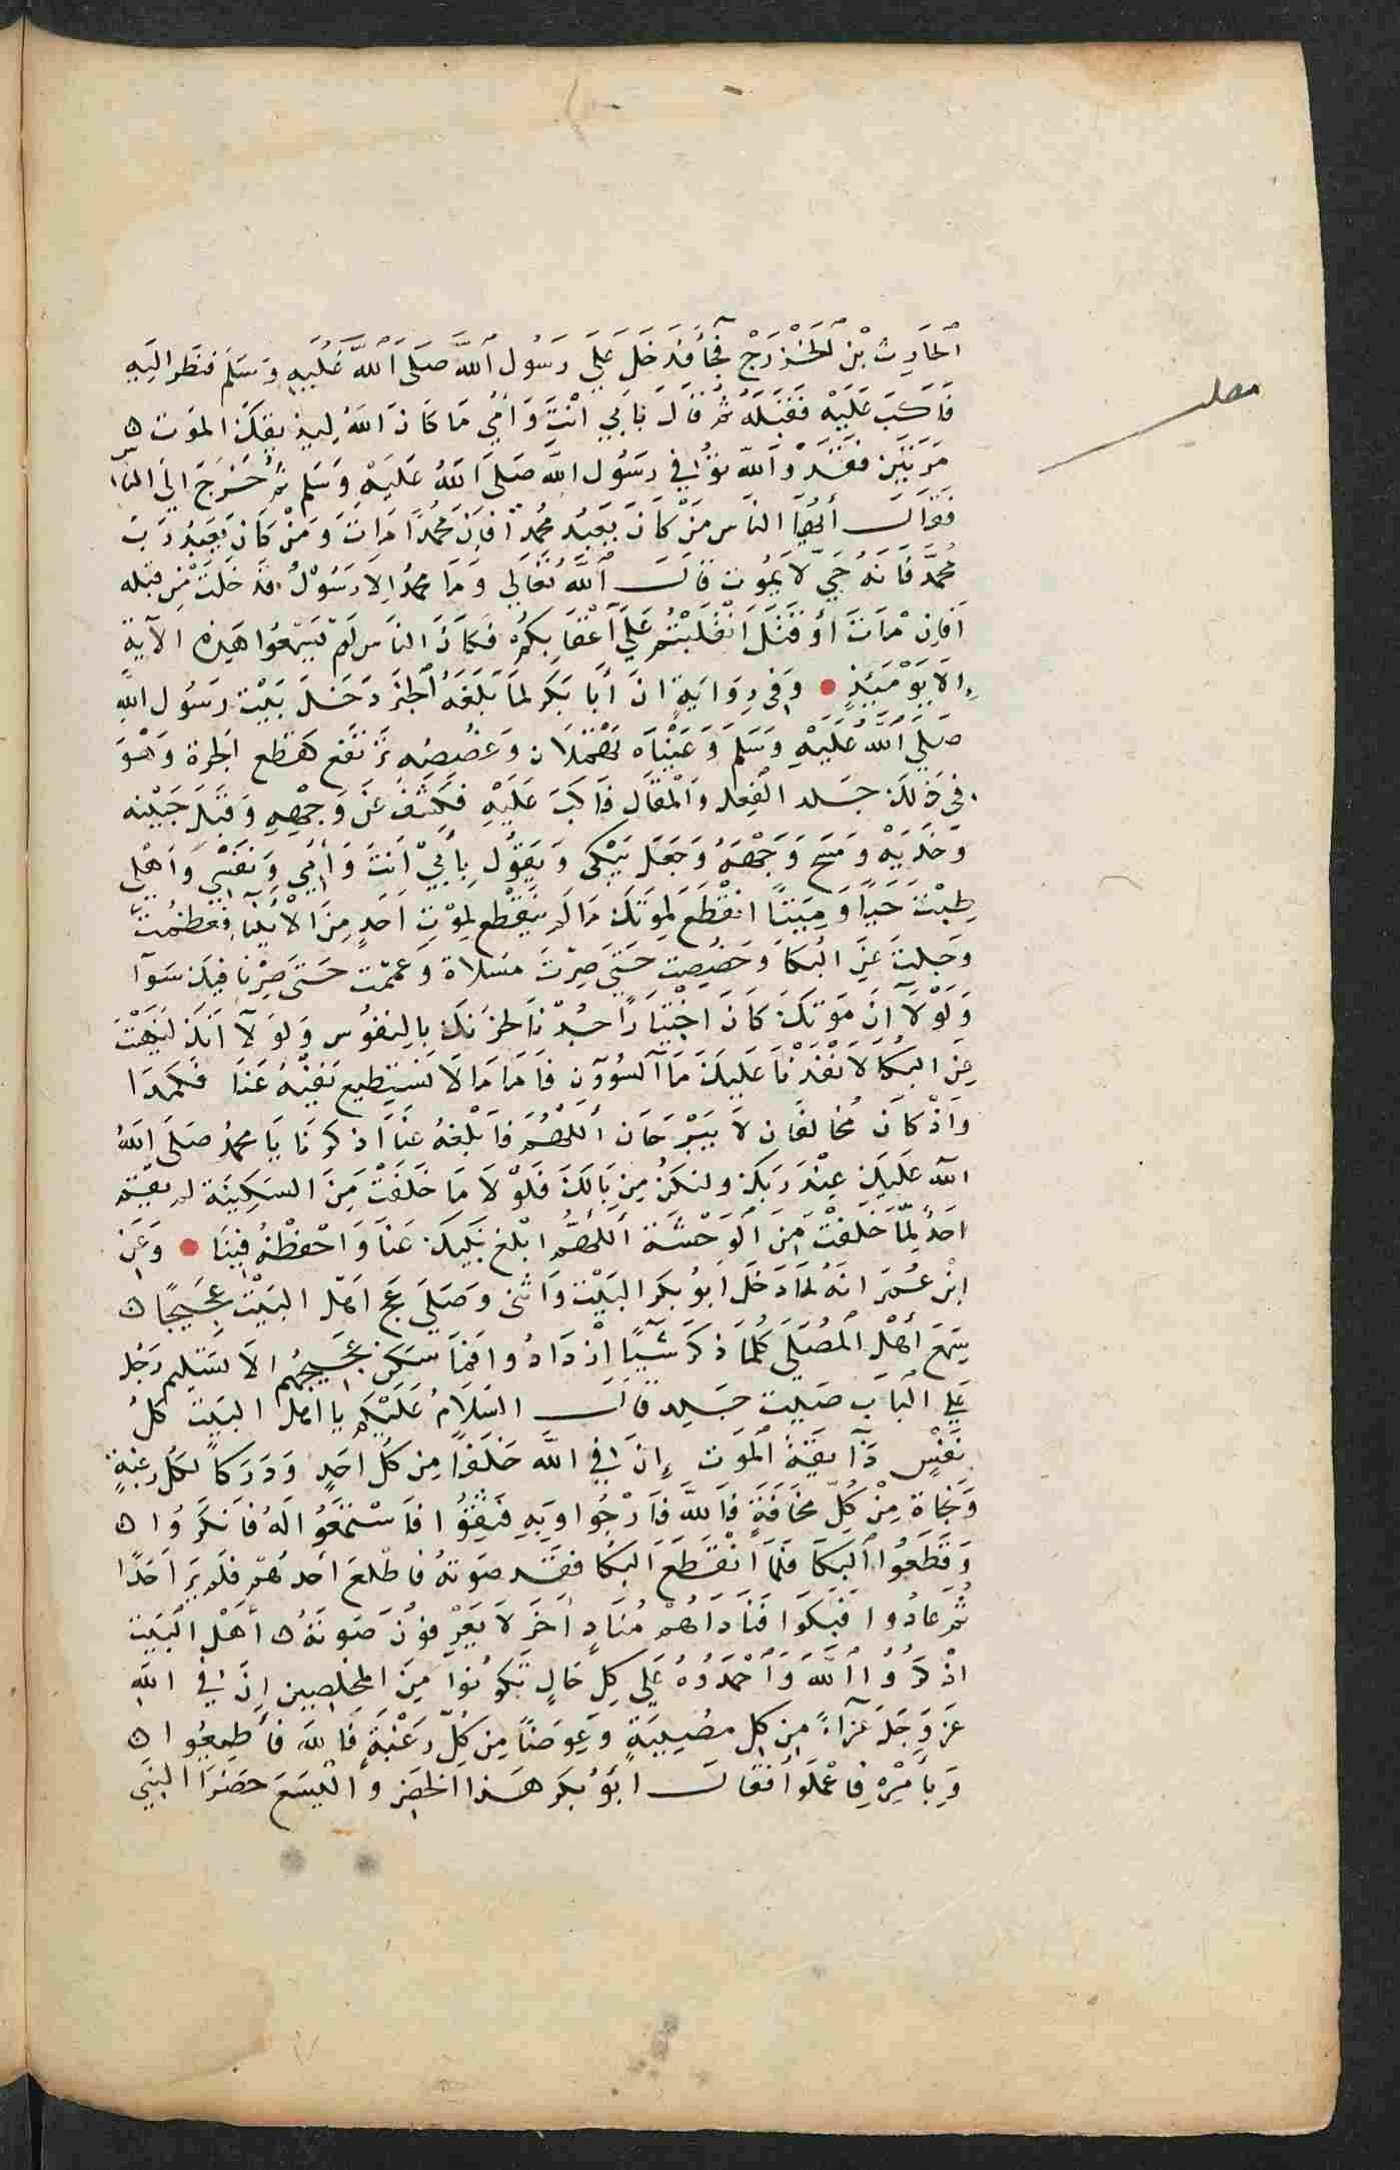 الحَارِث بْن الخَزْرَج فَجَآءَ فدَخَلَ عَلَي رَسُول اللَّه صَلَى اللَّه عَلَيهِ وَسَلَم فنَظَر اليَهِ
فَاكَبَ عَلَيْه فقَبَلَهُ ثُم قالَ بَابي انْتَ وَأُمي مَا كَانَ اللهُ لِيذيقكَ المَوت
مَرتَيَن فقَد وَالله توُفي رسَوُل اللَّه صَلَى اللهُ عَلَيْهِ وَسَلم ثُم خَرَجَ اليَ الناس
فقَالَ أيُهَا النَاس مَنْ كَانَ يَعَبُد مُحمدًا فاِنَ مُحمدًا مَاتَ وَمَنْ كَانَ يَعَبُد رَبَ
مُحمدَّ فَانهُ حَيّ لاَ يَموُت قَالَ اللَّهُ تعَالَي وَمَا محمدُ اِلاَ رَسُوْلُ قدَ خَلَتْ مِن قبْله
اَفاِنْ مَاتَ أوْ قُتَلَ انْقَلَبْتُم عَلَي أعْقَابِكُمْ فكَاَنَ النَاس لَم يَسْمَعُوا هَذِه الآيَة
اِلاَ يَوْمَيئذٍ • وَفي رِوَايَةٍ انَ أَبَا بَكر لمَا بَلَغَهُ الخبَرُ دَخَلَ بَيْت رَسُول اللَّهِ
صَلَي اللهُ عَلَيْهِ وَسَلَم وَعَيْنَاه تَهْمُلاَن وَغصُصُه ترْتَفَع كقطَع الجرة وَهْوَ
في ذَلَكَ جَلد الْفِعْل وَالْمقَالِ فَاكَبَ عَلَيْهِ فكَشَفَ عَن وَجْههِ وَقبَلَ جَبْينه
وَخَدَيهْ وَمَسَح وَجْههُ وَجَعَلَ يَبْكى وَيقَوُل بِأبيْ أنتَ وَأُمي وَنَفْسِي وَأهْلِي
طِبْتَ حَيًا وَمِيَتًا انْقطَعَ لِموَتكَ مَا لَم يَنقَطَع لِموْتِ اَحَدٍ مِنَ الأنْبِيَآء فعَظمُت
وَجَللتَ عَن البُكَا وَخصُصتَ حَتَي صِرْتَ مَسْلاة وَعَممّت حَتىَ صِرْنا فيكَ سَوآ
وَلوْلاَ انَ مَوْتكَ كَانَ اخْتيَارًا جُدْنا لحَزَنكَ بالِنفوُس وَلوَلاَ أنكَ نَهَيْتَ
عَنِ البُكا لاَنْفَدْنَا عَلَيكَ مَآ السُؤون فَامَا مَا لاَ نَسَتطِيع نَفيْهُ عَنَا فكمَدَا
وَاذْكَان مُحَالفان لاَ يَبَرْحَان اللَّهُمَ فَابَلْغهُ عَنَا اذكرنَا يَا محمدُ صَلىَ اللهُ
الله عَلَيكَ عِنْدَ رَبَكَ ولنكَن مِن بَالكَ فلَوْلاَ مَا خَلفَتْ مِنَ السَكِينَة لم يقَتم
احَدٌ لِماَ خَلفَتْ مِنَ الوَحْشَة اللَّهُم ابْلغ نَبيَكَ عَنَا وَاحْفظْهُ فيِنَا • وَعَن
ابْن عُمَرَ انهُ لمَا دَخَلَ ابوُ بكَر البَيْت وَاثنى وَصَلي عَج اهَلُ البَيْت عَجَيجًا
سَمعَ أهْل المُصَلَي كلُمَا ذكَرَ شَيًا ازْدَادُوا فمَا سَكن عَجَيجُهم الاَ تسَليم رَجُل
عَلَي البَاب صَيت جَليد قَالَ السَلاَمُ عَلَيْكم يا اهل البَيت كُلُ
نَفْسٍ ذَآيقَةُ المَوَتِ اِنَ في اللَّهِ خَلَفًا مِن كُل احَدٍ وَدَرَكاً لكل رغبَةٍ
وَنجَاة مِنْ كُلِّ مَخافَةٍ فالله فَارْجُوا وَبِهِ فثَقُوا فاَسْتَمَعُوا لَهُ فانكَروُا
وَقطَعُوا البُكَا فلَمَا انْقطَعَ البُكَا فقَدَ صَوَتهُ فاطَلعَ أحَدهُم فلَم يَر اَحَدًا
ثُم عَادُوا فبَكَوا فنَادَاهُم مُنَادٍ أخَر لاَ يَعْرِفوُنَ صَوتهُ أهْل البَيَت
اذْكرُوُا اللَّهَ وَاحْمَدُوُهُ عَلَي كلِ حَالٍ تَكوُنوُا مِنَ المخلِصِين اِنَ فِي اللهِ
عَزَ وَجَلَ عَزَآءً مِن كلِ مصُيِبَةٍ وَعِوضَاً مِن كُلِّ رَغْبَةٍ فَالله فأطِيعُوا
وَبِأمْرهِ فاعْمَلوُا فقَالَ ابوُ بكَر هَذا الخضِر وَالْيسَعَ حضَرَا النبَي